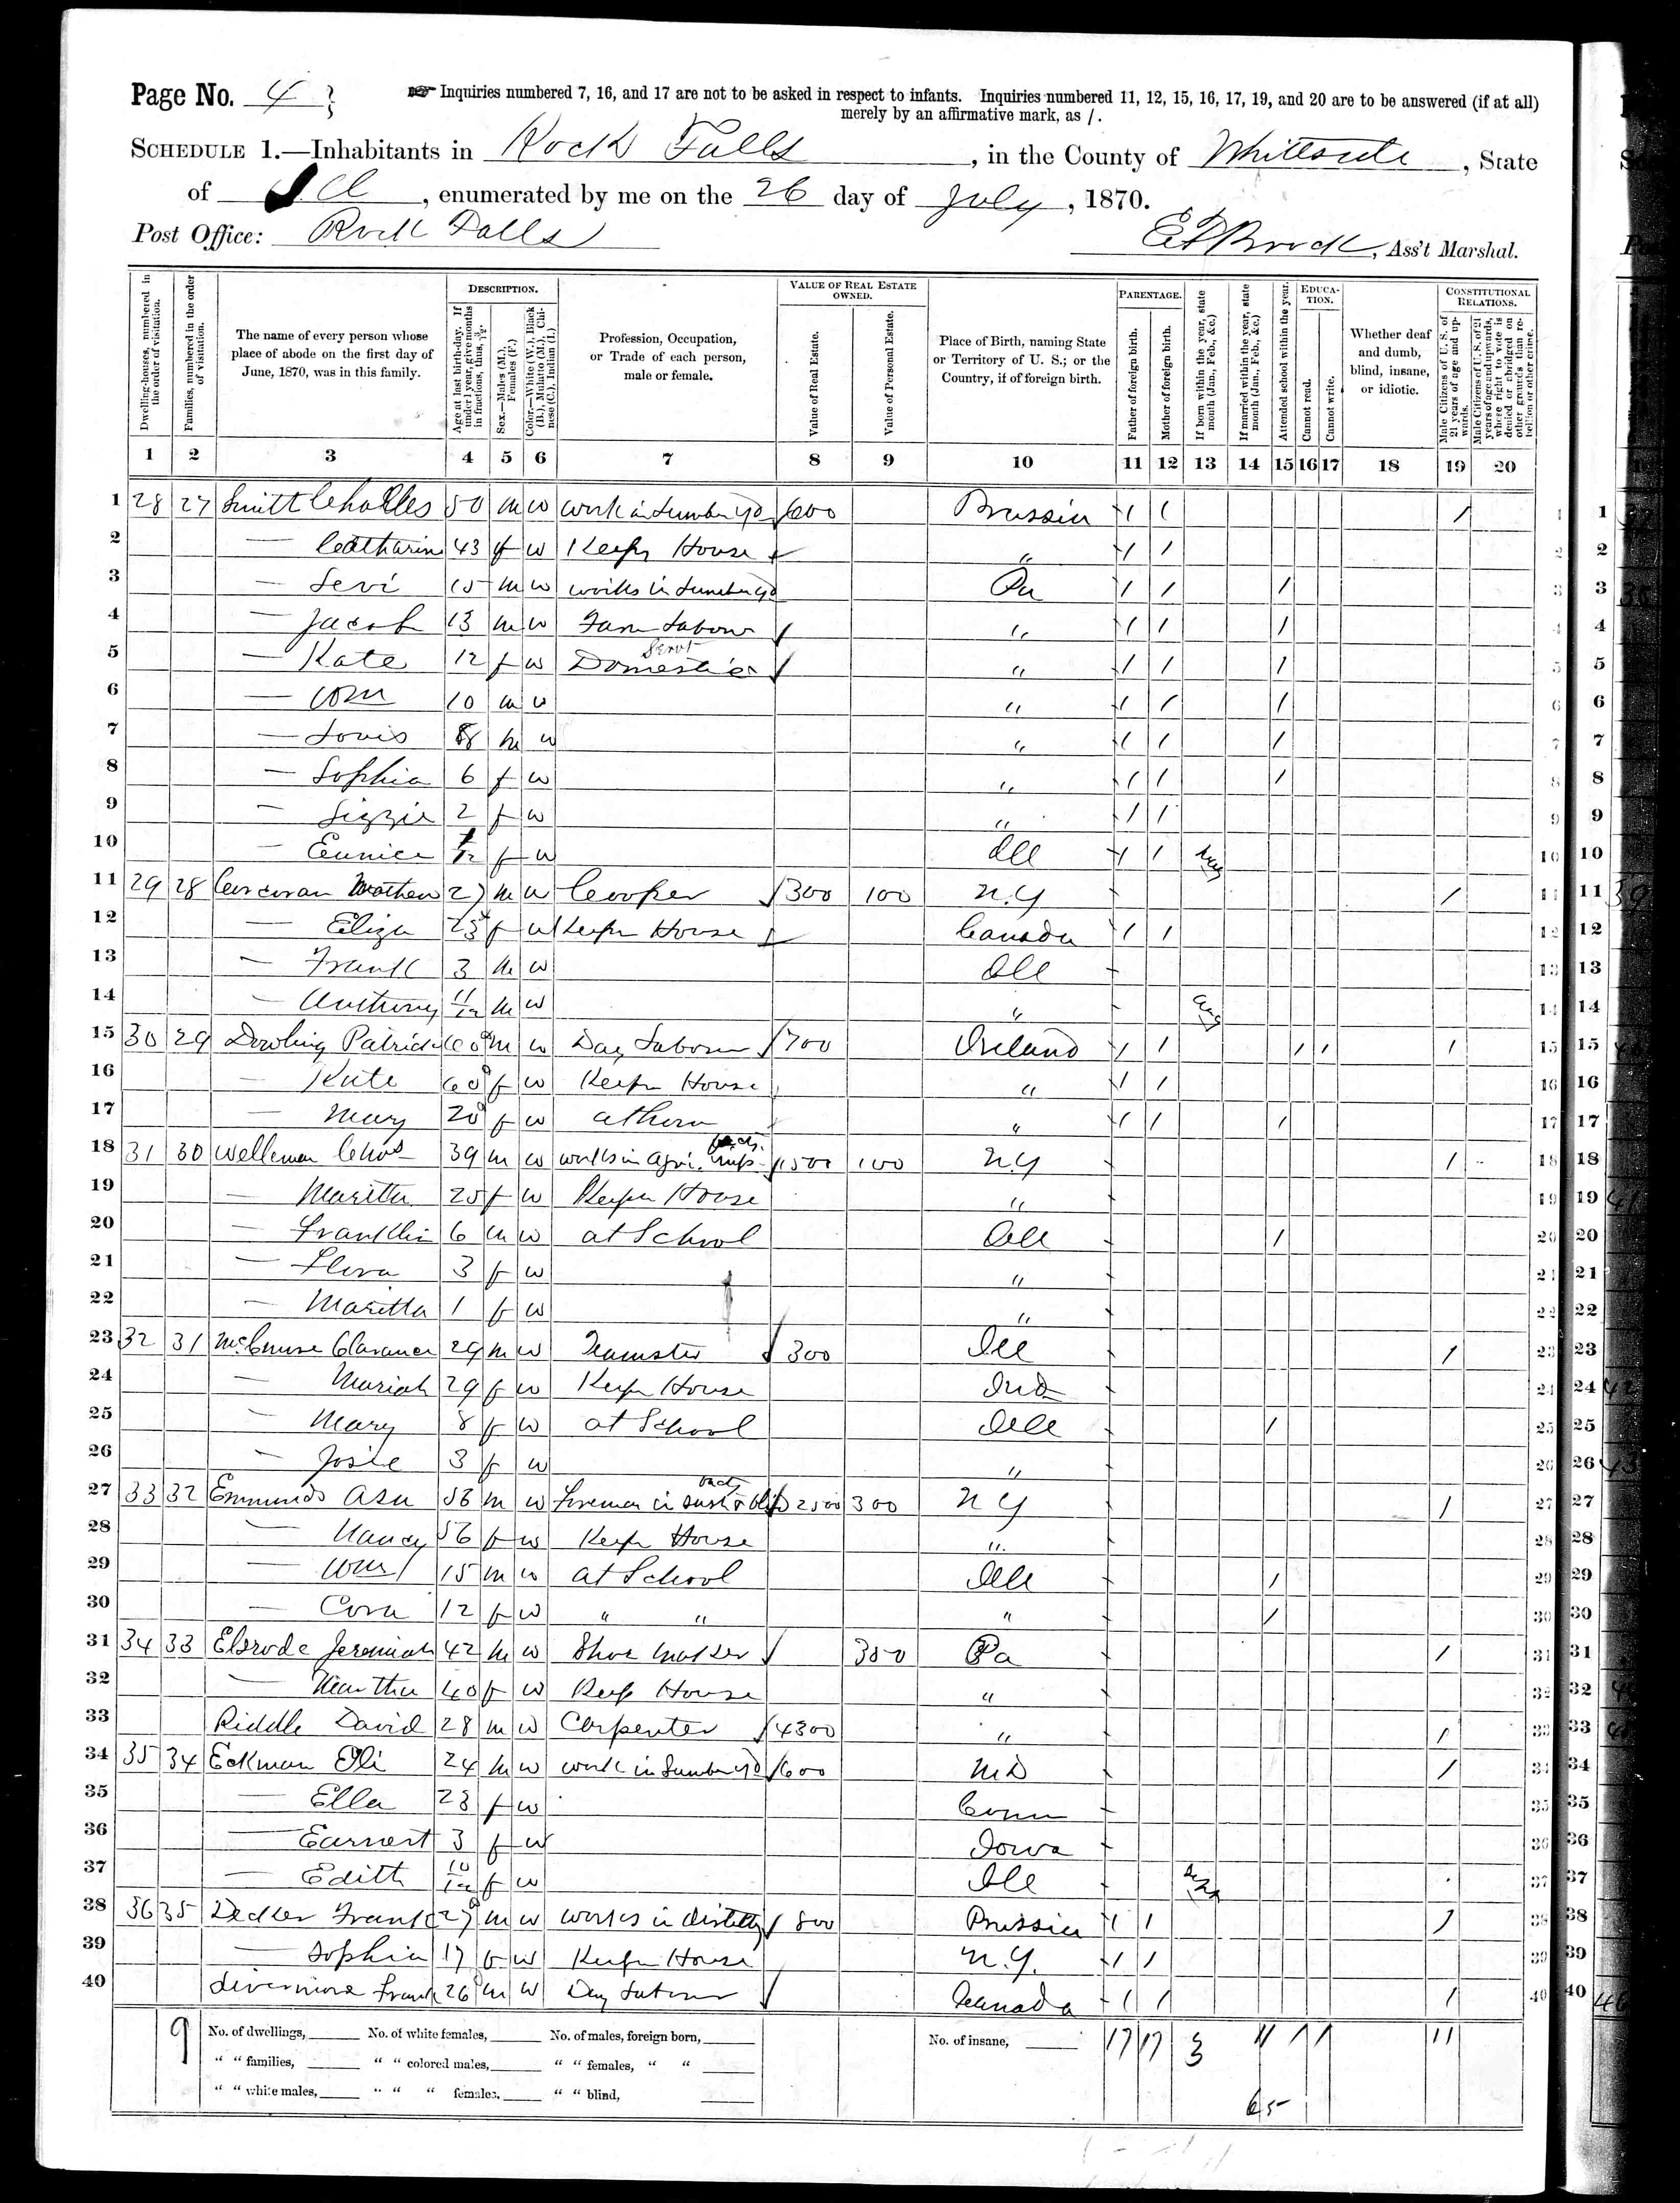 Page No. 4
Inquiries numbered 7, 16, and 17 are not to be asked in respect to infants. Inquiries numbered 11, 12, 15, 16, 17, 19, and 20 are to be answered (if at all)
merely by an affirmative mark, as /.
SCHEDULE 1.—Inhabitants in Rock Falls, in the County of Whiteside, State
of Ill, enumerated by me on the 26 day of July, 1870.
Post Office: Rock Falls
Brock, Ass't Marshal.
DESCRIPTION. VALUE OF REAL ESTATE OWNED. PARENTAGE. EDUCATION. CONSTITUTIONAL RELATIONS.
Dwelling-houses, numbered in the order of visitation.
Families, numbered in the order of visitation.
The name of every person whose place of abode on the first day of June, 1870, was in this family.
Age at last birth-day. If under 1 year, give months in fractions, thus, 3/12.
Sex.—Males (M.), Females (F.)
Color.—White (W.), Black (B.), Mulatto (M.), Chinese (C.), Indian (I.)
Profession, Occupation, or Trade of each person, male or female.
Value of Real Estate.
Value of Personal Estate.
Place of Birth, naming State or Territory of U. S.; or the Country, if of foreign birth.
Father of foreign birth.
Mother of foreign birth.
If born within the year, state month (Jan., Feb., &c.)
If married within the year, state month (Jan., Feb., &c.)
Attended school within the year.
Cannot read.
Cannot write.
Whether deaf and dumb, blind, insane, or idiotic.
Male Citizens of U. S. of 21 years of age and upwards.
Male Citizens of U. S. of 21 years of age and upwards, where right to vote is denied or abridged on other grounds than rebellion or other crime.
1 2 3 4 5 6 7 8 9 10 11 12 13 14 15 16 17 18 19 20
1 28 27 Smitt Charles 50 m w work in Lumber yd 600 Prussia / / / 1
2 — Catharine 43 f w Keeps House " / / 2
3 — Levi 15 m w works in Lumber yd Pa / / / 3
4 — Jacob 13 m w Farm Labour " / / / 4
5 — Kate 12 f w Domestic Servt " / / / 5
6 — Wm 10 m w " / / / 6
7 — Louis 8 m w " / / / 7
8 — Sophia 6 f w " / / / 8
9 — Lizzie 2 f w " / / 9
10 — Eunice f w Ill / / 10
11 29 28 Corcoran Mathew 27 m w Cooper 300 100 N.Y / 11
12 — Eliza f w Keeps House Canada / / 12
13 — Frank 3 m w Ill 13
14 — Anthony 11/12 m w " Aug 14
15 30 29 Dowling Patrick 60 m w Day Laborer 700 Ireland / / / / / 15
16 — Kate 60 f w Keeps House " / / 16
17 — Mary 20 f w at home " / / / 17
18 31 30 Welleman Chas 39 m w works in Agri. Imp. facty. 1500 100 N.Y / 18
19 — Maritta 25 f w Keeps House " 19
20 — Franklin 6 m w at School Ill / 20
21 — Flora 3 f w " 21
22 — Maritta 1 f w " 22
23 32 31 Clarance 29 m w Teamster 300 Ill / 23
24 — Mariah 29 f w Keeps House Ind 24
25 — Mary 8 f w at School Ill / 25
26 — Josie 3 f w " 26
27 33 32 Emmunds Asa 56 m w Foreman in sash & blind facty 2500 300 N Y / 27
28 — Nancy 56 f w Keeps House " 28
29 — Wm 15 m w at School Ill / 29
30 — Cora 12 f w " " " / 30
31 34 33 Elsrode Jeremiah 42 m w Shoe Maker 350 Pa / 31
32 — Martha 40 f w Keeps House " 32
33 Riddle David 28 m w Carpenter 4300 " / 33
34 35 34 Eckman Eli 24 m w work in Lumber yd 600 MD / 34
35 — Ella 23 f w Conn 35
36 — Earnest 3 f w Iowa 36
37 — Edith 10/12 f w Ill 37
38 36 35 Decker Frank 27 m w works in distilly 800 Prussia / / / 38
39 — Sophia 17 f w Keeps House N.Y. / / 39
40 Livermore Frank 26 m w Day Laborer Canada / / / 40
9 No. of dwellings, No. of white females, No. of males, foreign born, No. of insane, 17 17 3 11 1 1 11
" " families, " " colored males, " " females, " "
" " white males, " " " females, " " blind,
65